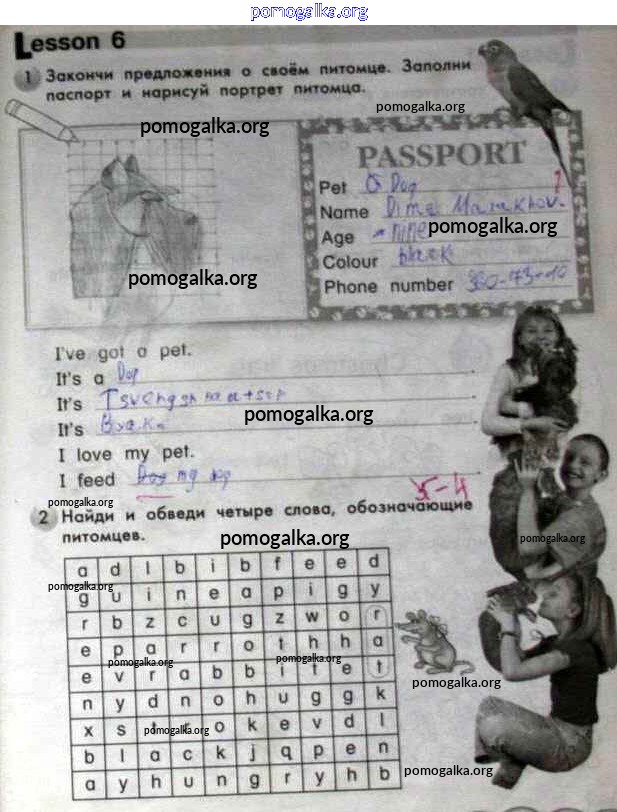 pomogalka.org
Lesson 6
1 Закончи предложения о своём питомце. Заполни
паспорт и нарисуй портрет питомца.
pomogalka.org
pomogalka.org
PASSPORT
Pet Dog
Name Dima
pomogalka.org
Age nine
Colour black
pomogalka.org
Phone number
I've got a pet.
It's a Dog
It's
pomogalka.org
It's
I love my pet.
I feed Dog my dog
5-4
pomogalka.org
2 Найди и обведи четыре слова, обозначающие
питомцев.
pomogalka.org
pomogalka.org
a d l b i b f e e d
pomogalka.org
g u i n e a p i g y
r b z c u g z w o r
e p a r r o t h h a
pomogalka.org
pomogalka.org
e v r a b b i t e t
pomogalka.org
n y d n o h u g g k
x s t r o k e v d l
pomogalka.org
b l a c k j q p e n
pomogalka.org
a y h u n g r y h b